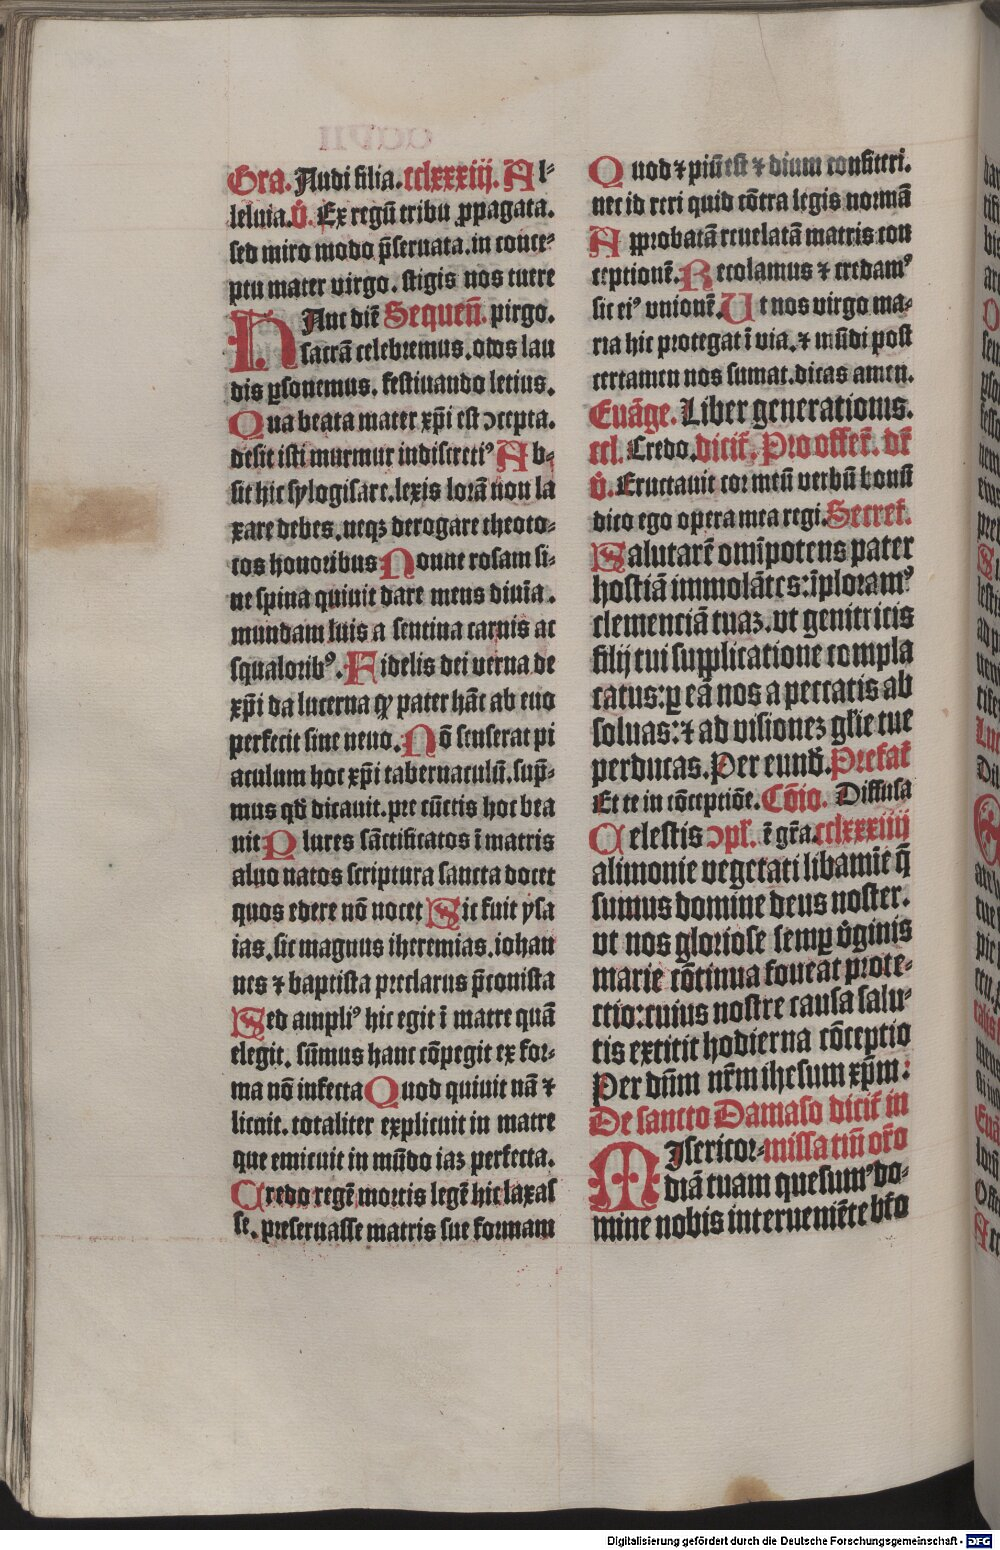 Gra. Audi filia. cclxxxiij. Al⸗
leluia. v̾. Ex regū tribu ꝓpagata.
sed miro modo p̄seruata. in conce⸗
ptu mater virgo. stigis nos tuere
HAnc diē Sequen̄. pirgo.
sacrā celebremus. odos lau
dis ꝑsonemus. festiuando letius.
Qua beata mater xp̄i est ↄcepta.
desit isti murmur indiscretiꝰ Ab⸗
sit hic sylogisare. lexis lorā non la
xare debes. neqꝫ derogare theoto⸗
cos honoribus Nonne rosam si⸗
ne spina quiuit dare meus diuīa.
mundam luis a sentina carnis ac
squaloribꝰ. Fidelis dei verna de
xp̄i da lucerna qꝙ pater hāc ab euo
perfecit sine neuo. Nō senserat pi
aculum hoc xp̄i tabernaculū. sup̄⸗
mus qđ dicauit. pre cūctis hoc bea
uit Plures sāctificatos ī matris
aluo natos scriptura sancta docet
quos edere nō nocet Sic fuit ysa
ias. sic magnus iheremias. iohan
nes ⁊ baptista preclarus p̄conista
Sed ampliꝰ hic egit ī matre quā
elegit. sūmus hanc cōpegit ex for⸗
ma nō infecta Quod quiuit nā ⁊
licuit. totaliter explicuit in matre
que emicuit in mūdo iaꝫ perfecta.
Credo regē mortis legē hic laxas
se. preseruasse matris sue formam
Quod ⁊ piū est ⁊ dium confiteri.
nec id reri quid cōtra legis normā
Approbatā reuelatā matris con
ceptionē. Recolamus ⁊ credamꝰ
sic eiꝰ vnionē. Ut nos virgo ma⸗
ria hic protegat ī via. ⁊ in mūdi post
certamen nos sumat. dicas amen.
Euāge. Liber generationis.
ccl. Credo. dicit̄. Pro offer̄. dr̄
v̾. Eructauit cor meū verbū bonū
dico ego opera mea regi. Secret̄.
Salutarē om̄ipotens pater
hostiā immolātes: īploramꝰ
clemenciā tuaꝫ. vt genitricis
filij tui supplicatione compla
catus: ꝑ eā nos a peccatis ab
soluas: ⁊ ad visioneꝫ gl̄ie tue
perducas. Per eund̄. Prefat̄
Et te in cōceptiōe. Cōio. Diffusa
Celestis ↄpl̄. ē gr̄a. cclxxxiiij
alimonie vegetati libamīe q̄
sumus domine deus noster.
vt nos gloriose semꝑ v̾ginis
marie cōtinua foueat prote⸗
ctio: cuius nostre causa salu⸗
tis extitit hodierna cōceptio
Per dn̄m nr̄m ihesum xp̄m:
De sancto Damaso dicit̄ in
MIsericor⸗ missa tm̄ or̄o
diā tuam quesumꝰ do⸗
mine nobis interueniēte bt̄o